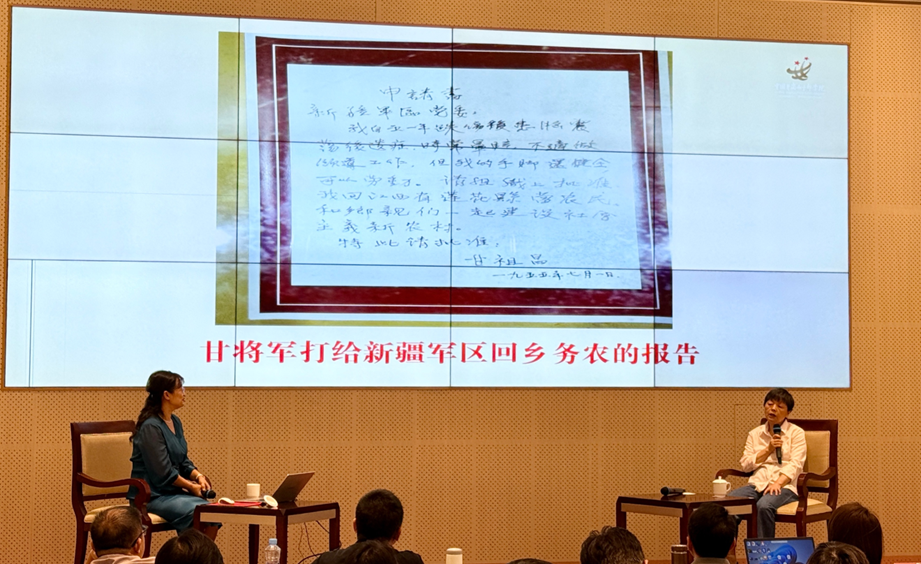 申请书
新疆军区党委。
我自五一年跌伤患脑震
荡后遗症，时常晕眩，不能做
领导工作，但我的手脚还健全
可以劳动。请组织上批准
我回江西省莲花县当农民，
和乡亲们一起建设社会
主义新农村。
特此请批准：
甘祖昌
一九五五年七月一日.
甘将军打给新疆军区回乡务农的报告